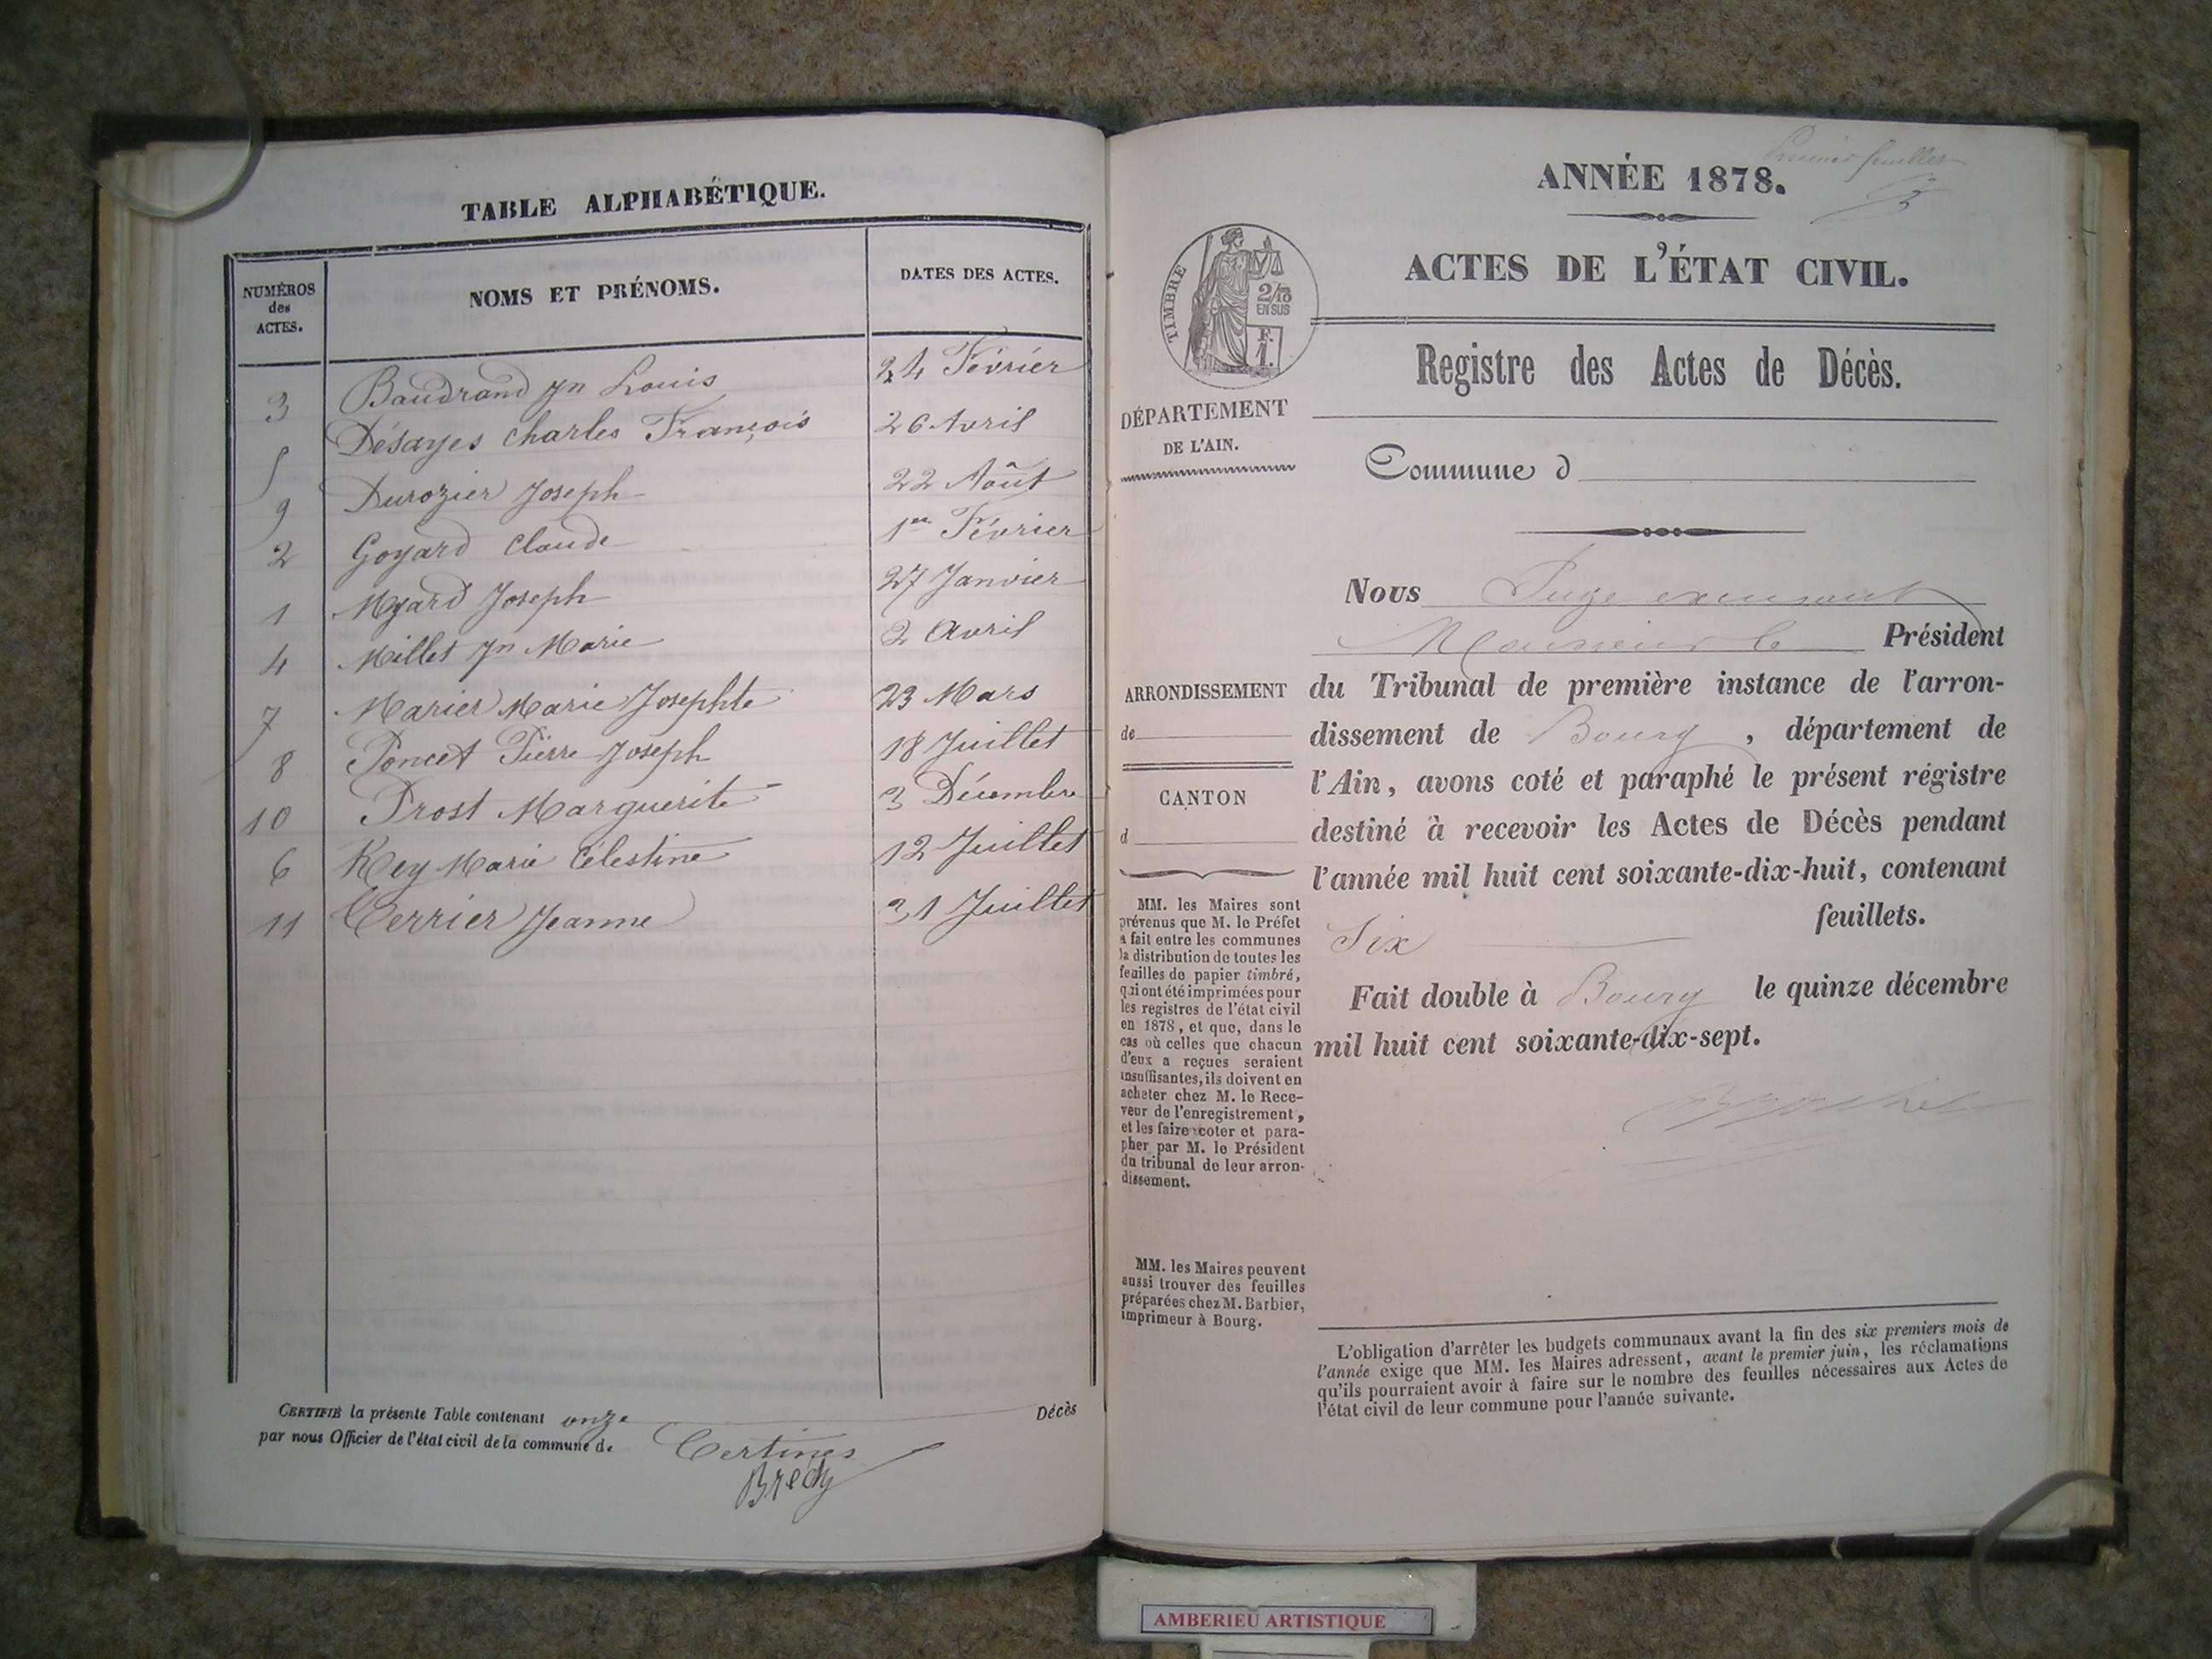 TABLE ALPHABÉTIQUE.
NUMÉROS
des
ACTES.
NOMS ET PRÉNOMS.
DATES DES ACTES.
3 Baudrand Jn Louis 24 Février
5 Désayes Charles François 26 Avril
9 Durozier Joseph 22 Août
2 Goyard Claude 1er Février
1 Myard Joseph 27 Janvier
4 Millet Jn Marie 2 Avril
7 Marier Marie Josephte 23 Mars
8 Poncet Pierre Joseph 18 Juillet
10 Prost Marguerite 3 Décembre
6 Rey Marie Célestine 12 Juillet
11 Terrier Jeanne 31 Juillet
CERTIFIÉ la présente Table contenant onze Décès
par nous Officier de l'état civil de la commune de Certines
Brédy
Premier feuillet
ANNÉE 1878.
ACTES DE L'ÉTAT CIVIL.
TIMBRE
2/10
EN SUS
F.
1.
Registre des Actes de Décès.
DÉPARTEMENT
DE L'AIN.
Commune d
Nous Juge
Monsieur le Président
ARRONDISSEMENT
de
CANTON
d
du Tribunal de première instance de l'arron-
dissement de Bourg, département de
l'Ain, avons coté et paraphé le présent régistre
destiné à recevoir les Actes de Décès pendant
l'année mil huit cent soixante-dix-huit, contenant
Six feuillets.
Fait double à Bourg le quinze décembre
mil huit cent soixante-dix-sept.
MM. les Maires sont
prévenus que M. le Préfet
a fait entre les communes
la distribution de toutes les
feuilles de papier timbré,
qui ont été imprimées pour
les registres de l'état civil
en 1878, et que, dans le
cas où celles que chacun
d'eux a reçues seraient
insuffisantes, ils doivent en
acheter chez M. le Rece-
veur de l'enregistrement,
et les faire coter et para-
pher par M. le Président
du tribunal de leur arron-
dissement.
MM. les Maires peuvent
aussi trouver des feuilles
préparées chez M. Barbier,
imprimeur à Bourg.
L'obligation d'arrêter les budgets communaux avant la fin des six premiers mois de
l'année exige que MM. les Maires adressent, avant le premier juin, les réclamations
qu'ils pourraient avoir à faire sur le nombre des feuilles nécessaires aux Actes de
l'état civil de leur commune pour l'année suivante.
AMBERIEU ARTISTIQUE